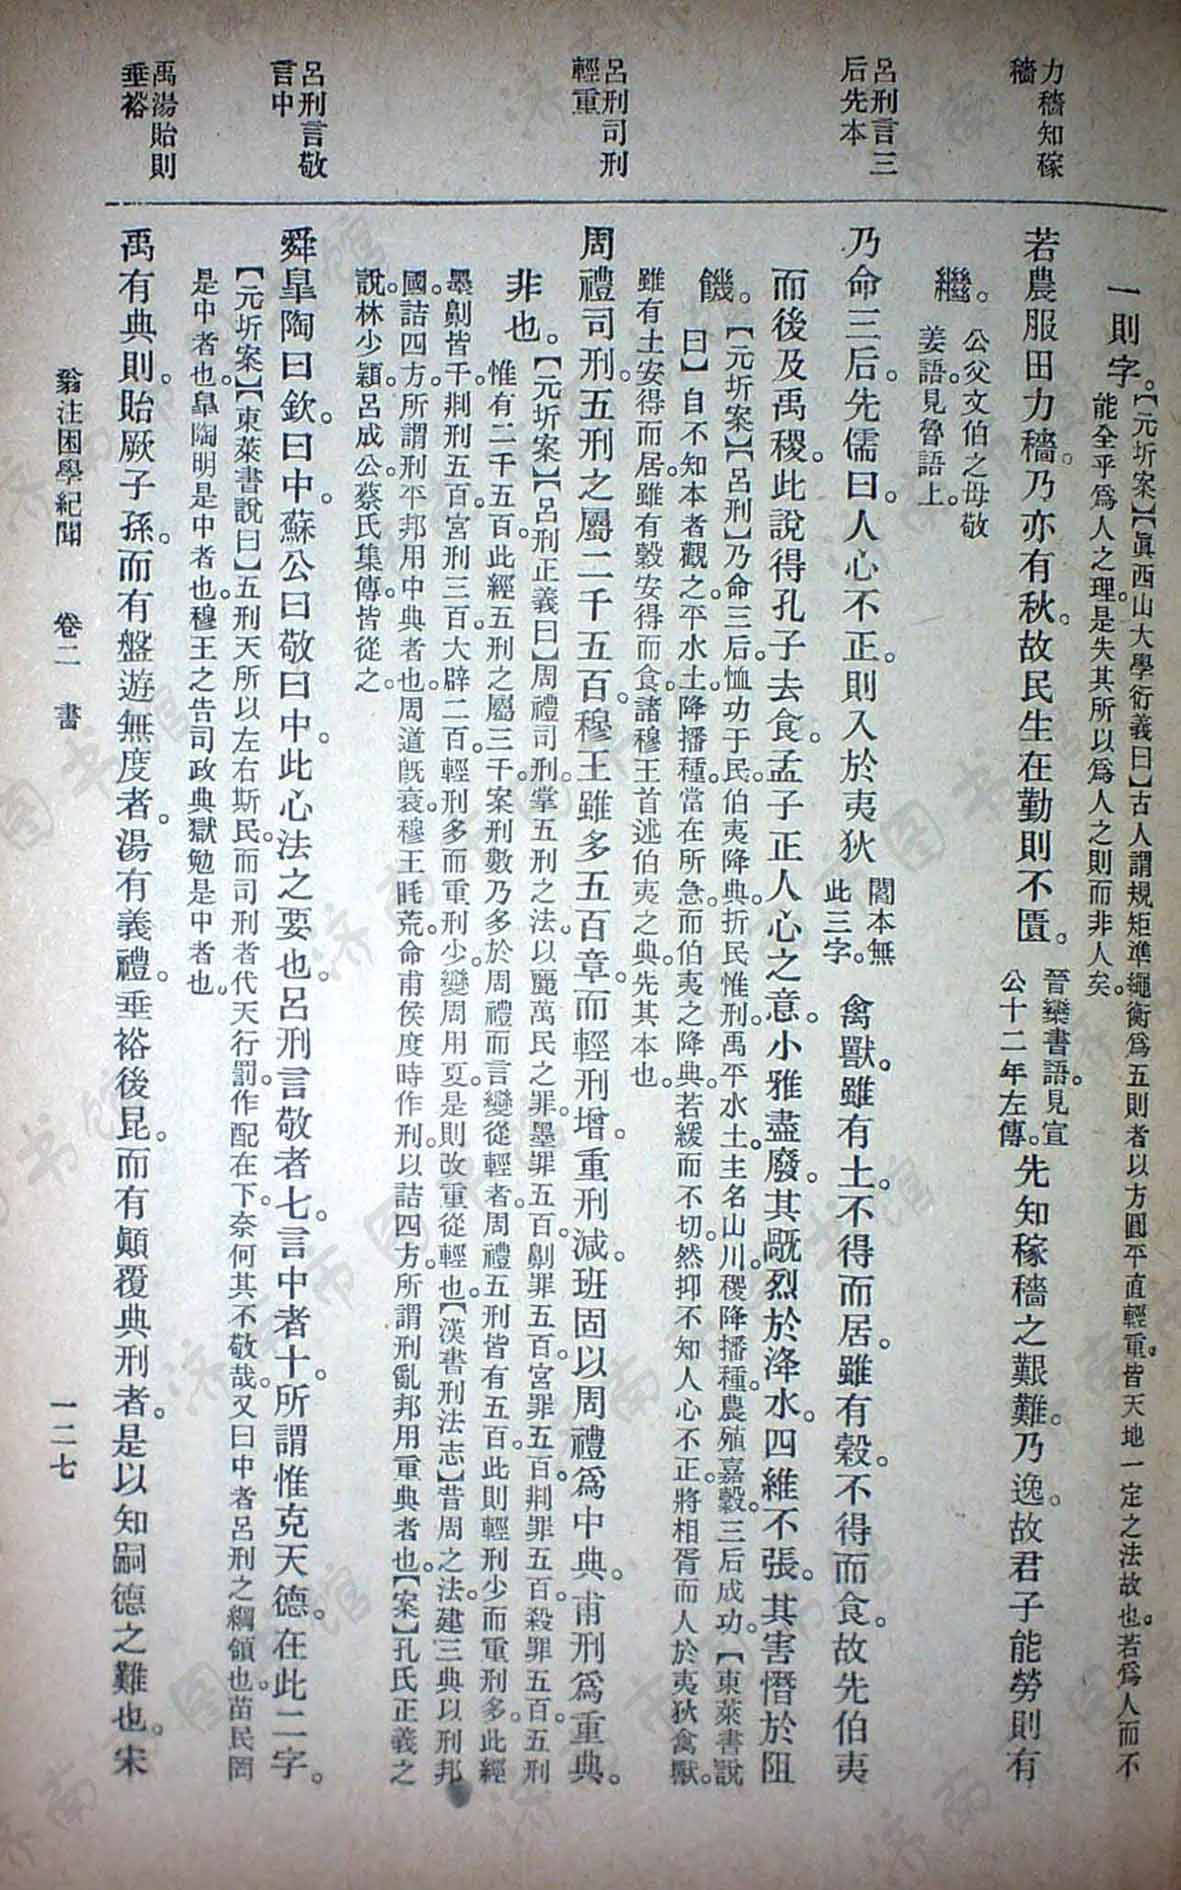 力穡知稼
穡
呂刑言三
后先本
呂刑司刑
輕重
呂刑言敬
言中
禹湯貽則
垂裕
一則字。【元圻案】【眞西山大學衍義曰】古人謂規矩準繩衡爲五則者以方圓平直輕重皆天地一定之法故也。若爲人而不
能全乎爲人之理是失其所以爲人之則而非人矣。
若農服田力穡。乃亦有秋。故民生在勤則不匱。
晉欒書語。見宣
公十二年左傳。
先知稼穡之艱難。乃逸。故君子能勞則有
繼。
公父文伯之母敬
姜語。見魯語上。
乃命三后。先儒曰。人心不正。則入於夷狄
閻本無
此三字。
禽獸。雖有土。不得而居。雖有穀。不得而食。故先伯夷
而後及禹稷。此說得孔子去食。孟子正人心之意。小雅盡廢。其戚烈於洚水。四維不張。其害憯於阻
饑。
【元圻案】【呂刑】乃命三后。恤功于民。伯夷降典。折民惟刑。禹平水土。主名山川。稷降播種。農殖嘉穀。三后成功。【東萊書說
曰】自不知本者觀之。平水土。降播種。當在所急。而伯夷之降典。若緩而不切。然抑不知人心不正。將相胥而人於夷狄禽獸。
雖有土安得而居。雖有穀安得而食。諸穆王首述伯夷之典。先其本也。
周禮司刑。五刑之屬二千五百。穆王雖多五百章。而輕刑增。重刑減。班固以周禮爲中典。甫刑爲重典。
非也。
【元圻案】【呂刑正義曰】周禮司刑。掌五刑之法。以麗萬民之罪。墨罪五百。劓罪五百。宮罪五百。剕罪五百。殺罪五百。五刑
惟有二千五百。此經五刑之屬三千。案刑數乃多於周禮。而言變從輕者。周禮五刑皆有五百。此則輕刑少而重刑多。此經
墨劓皆千。剕刑五百。宮刑三百。大辟二百。輕刑多而重刑少。變周用夏。是則改重從輕也。【漢書刑法志】昔周之法。建三典以刑邦
國。詰四方。所謂刑平邦用中典者也。周道旣衰。穆王眊荒。命甫侯度時作刑。以詰四方。所謂刑亂邦用重典者也。【案】孔氏正義之
說。林少穎。呂成公。蔡氏集傳。皆從之。
舜皐陶曰欽。曰中。蘇公曰敬。曰中。此心法之要也。呂刑言敬者七。言中者十。所謂惟克天德。在此二字。
【元圻案】【東萊書說曰】五刑天所以左右斯民。而司刑者代天行罰。作配在下。奈何其不敬哉。又曰中者呂刑之綱領也。苗民罔
是中者也。皐陶明是中者也。穆王之告司政典獄勉是中者也。
禹有典則。貽厥子孫。而有盤遊無度者。湯有義禮。垂裕後昆。而有顚覆典刑者。是以知嗣德之難也。宋
翁注困學紀聞　卷二　書　一二七